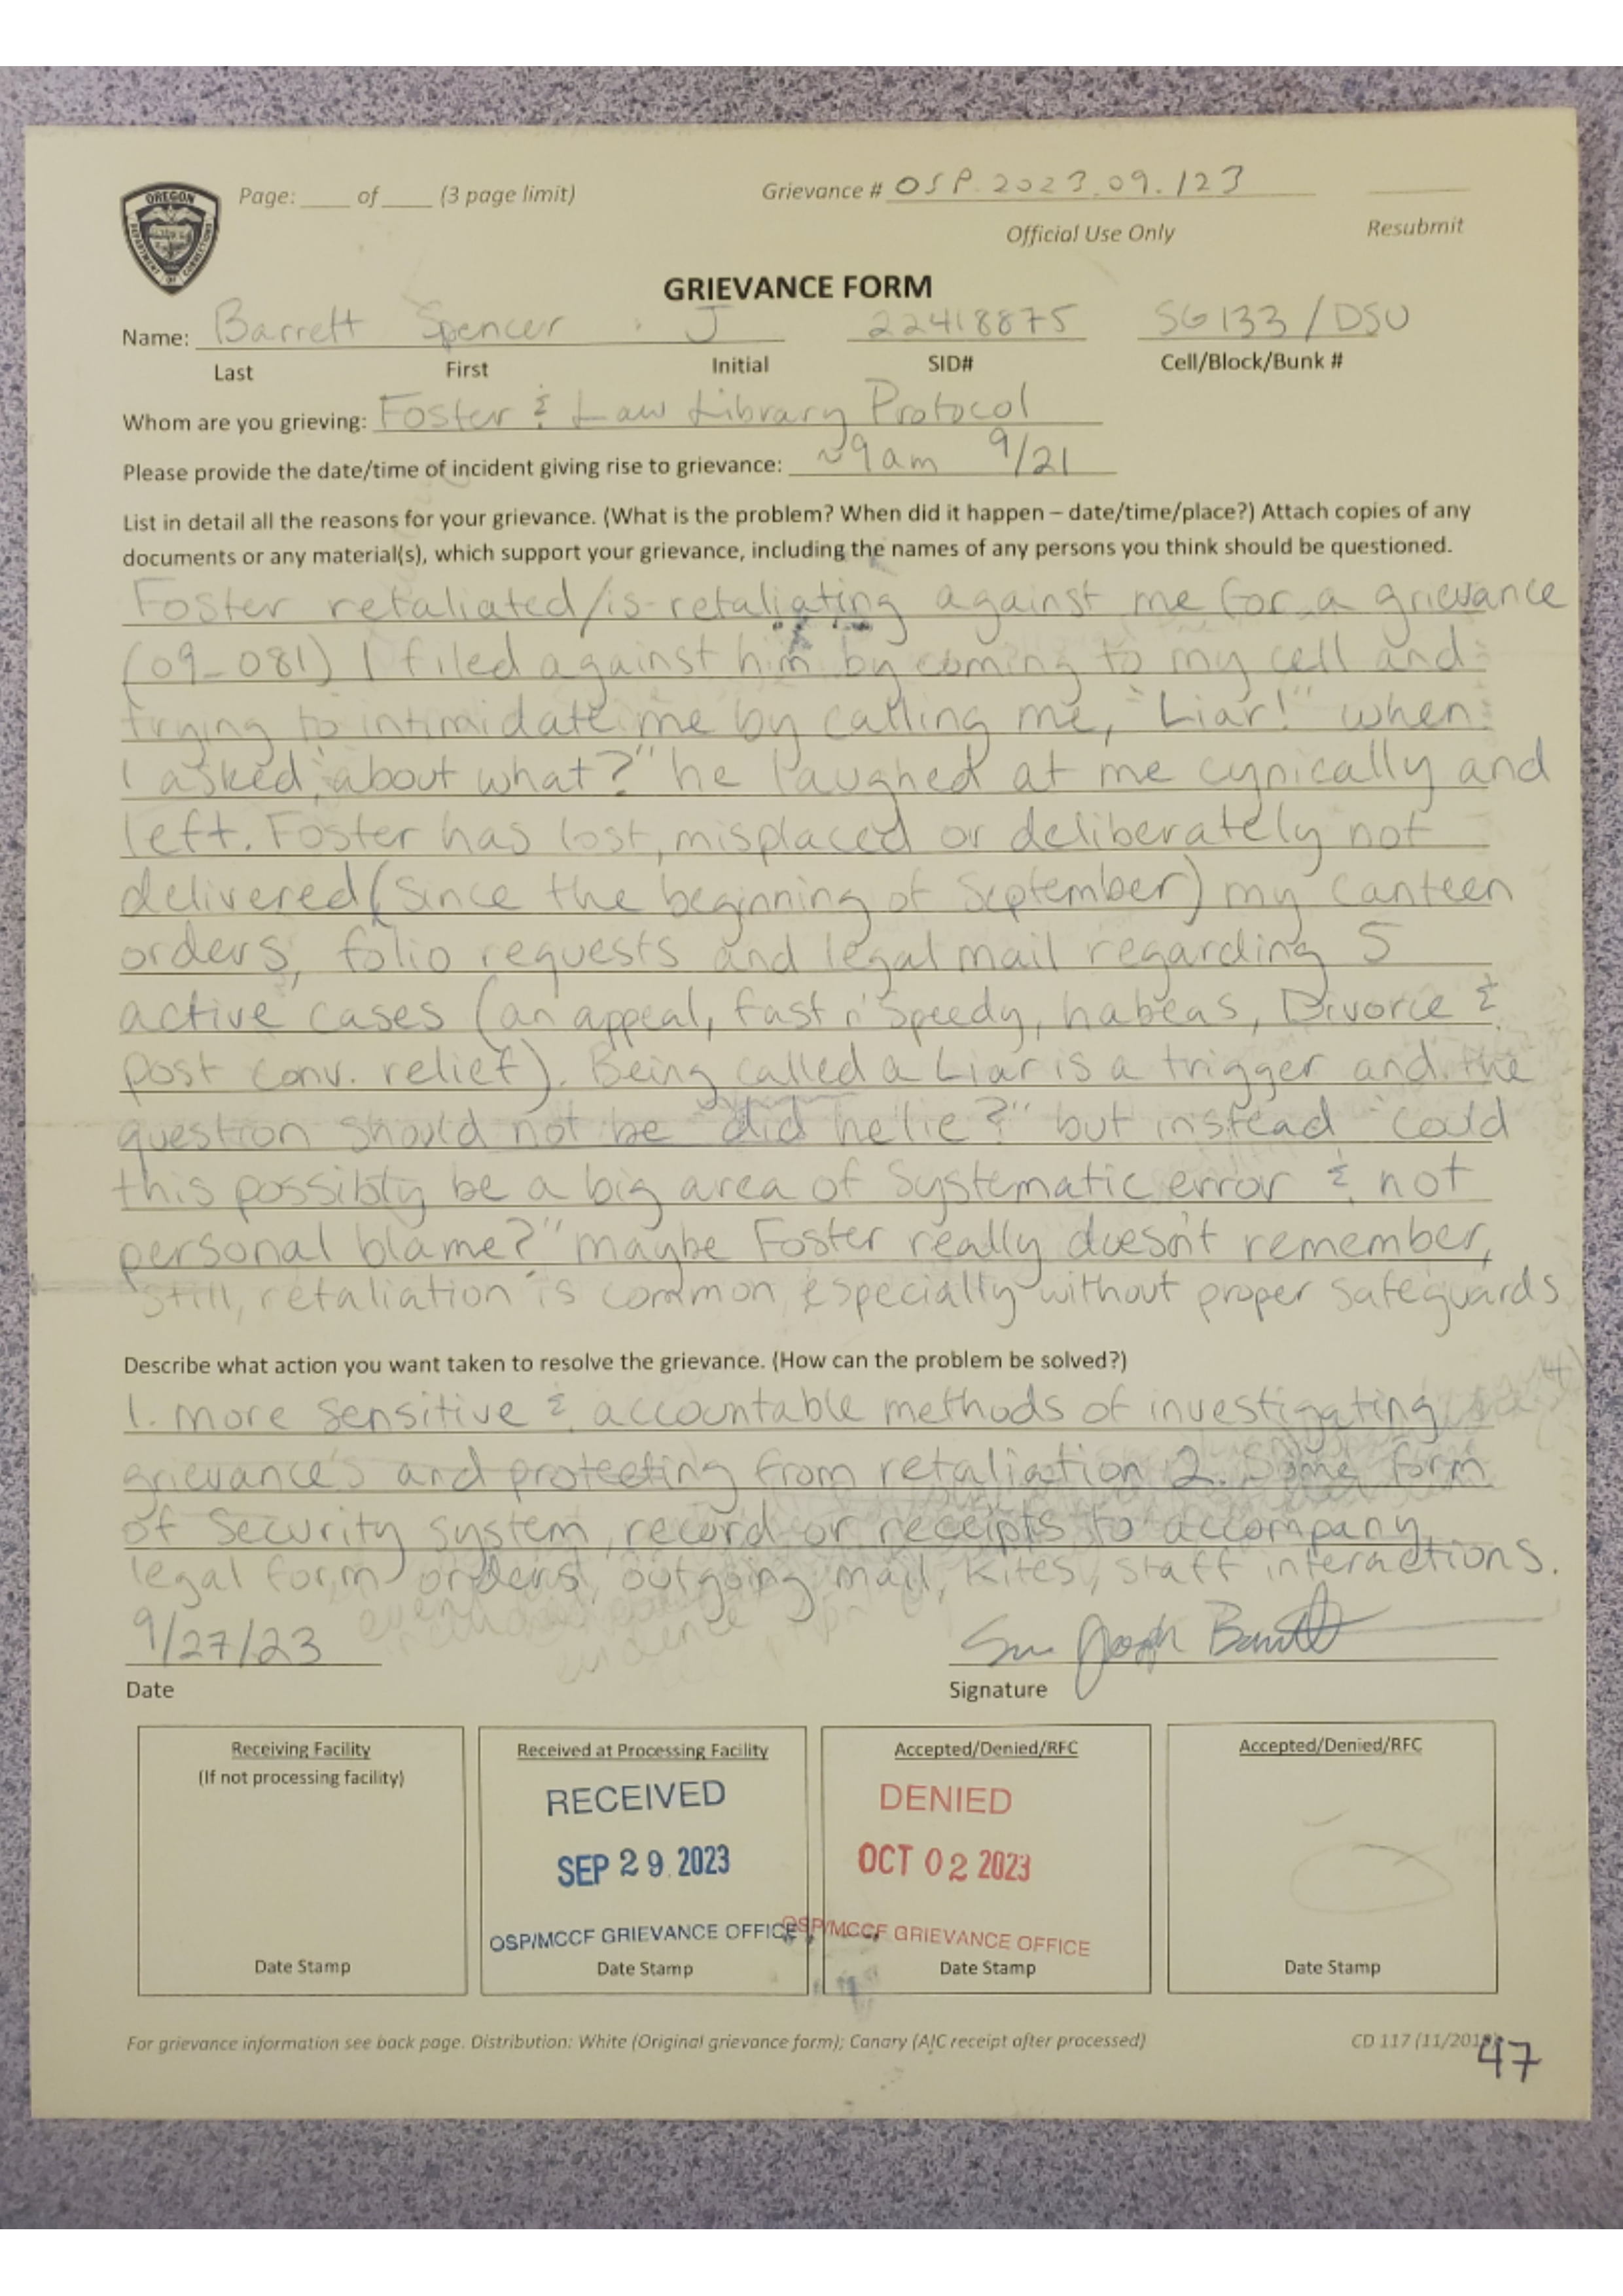 OREGON
DEPARTMENT OF CORRECTIONS
Page: ____ of ____ (3 page limit)
Grievance # OSP.2023.09.123
Official Use Only
Resubmit
GRIEVANCE FORM
Name: Barrett Spencer J 22418875 SG133/DSU
Last First Initial SID# Cell/Block/Bunk #
Whom are you grieving: Foster & Law Library Protocol
Please provide the date/time of incident giving rise to grievance: ~9am 9/21
List in detail all the reasons for your grievance. (What is the problem? When did it happen – date/time/place?) Attach copies of any
documents or any material(s), which support your grievance, including the names of any persons you think should be questioned.
Foster retaliated/is retaliating against me for a grievance
(09_081) I filed against him by coming to my cell and
trying to intimidate me by calling me, "Liar!" when
I asked "about what?" he laughed at me cynically and
left. Foster has lost, misplaced or deliberately not
delivered (since the beginning of September) my canteen
orders, folio requests and legal mail regarding 5
active cases (an appeal, fast n' Speedy, habeas, Divorce &
post conv. relief). Being called a Liar is a trigger and the
question should not be "did he lie?" but instead "could
this possibly be a big area of systematic error & not
personal blame?" maybe Foster really doesn't remember,
still, retaliation is common, especially without proper safeguards
Describe what action you want taken to resolve the grievance. (How can the problem be solved?)
1. more sensitive & accountable methods of investigating
grievance's and protecting from retaliation 2. Some form
of Security system, record or receipts to accompany
legal form orders, outgoing mail, kites, staff interactions.
9/27/23
Date
Signature
Receiving Facility
(If not processing facility)
Date Stamp
Received at Processing Facility
RECEIVED
SEP 29 2023
OSP/MCCF GRIEVANCE OFFICE
Date Stamp
Accepted/Denied/RFC
DENIED
OCT 02 2023
OSP/MCCF GRIEVANCE OFFICE
Date Stamp
Accepted/Denied/RFC
Date Stamp
For grievance information see back page. Distribution: White (Original grievance form); Canary (AIC receipt after processed)
CD 117
47